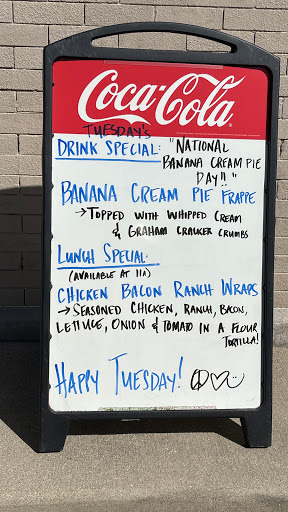 Coca-Cola
TUESDAY'S
DRINK SPECIAL: "NATIONAL
BANANA CREAM PIE
DAY!!"
BANANA CREAM PIE FRAPPE
→TOPPED WITH WHIPPED CREAM
& GRAHAM CRACKER CRUMBS
LUNCH SPECIAL:
(AVAILABLE AT 11A)
CHICKEN BACON RANCH WRAPS
→ SEASONED CHICKEN, RANCH, BACON,
LETTUCE, ONION & TOMATO IN A FLOUR
TORTILLA!
HAPPY TUESDAY!